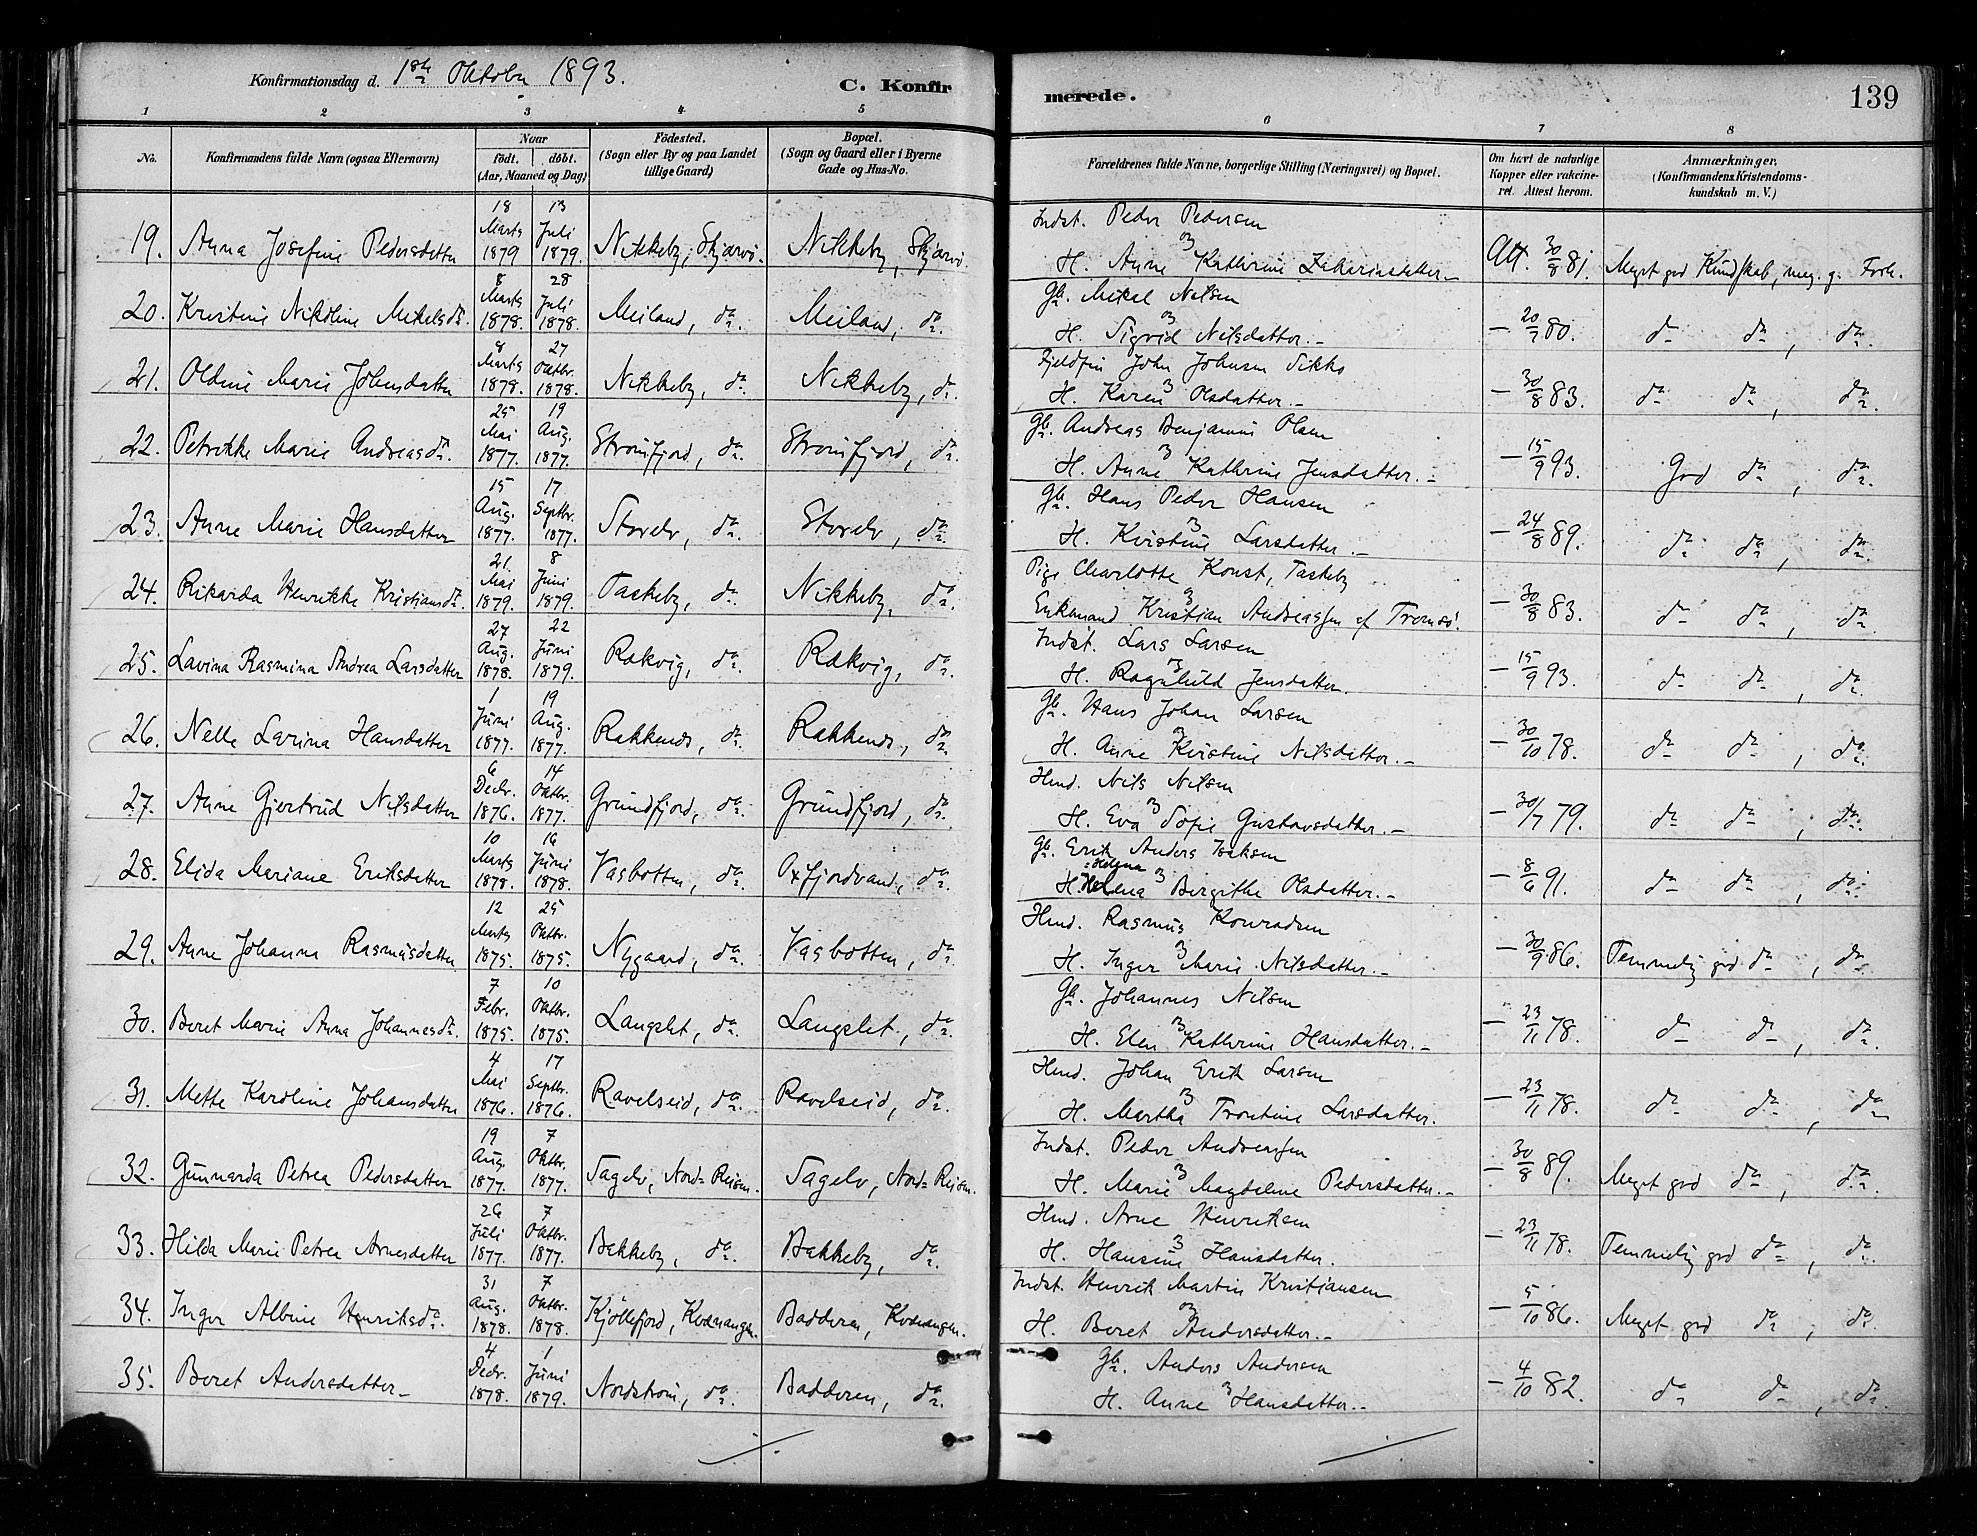 Konfirmationsdag d. 1ste Oktober 1893.
C. Konfirmerede.
139
1 2 3 4 5 6 7 8
No.
Konfirmandens fulde Navn (ogsaa Efternavn)
Naar
födt. döbt.
(Aar, Maaned og Dag)
Födested.
(Sogn eller By og paa Landet tillige Gaard)
Bopæl.
(Sogn og Gaard eller i Byerne Gade og Hus-No.
Forældrenes fulde Navne, borgerlige Stilling (Næringsvei) og Bopæl.
Om havt de naturlige Kopper eller vakcineret. Attest herom.
Anmærkninger.
(Konfirmandens Kristendomskundskab m. V.)
19. Anna Josefine Pedersdatter 18 Marts 1879 13 Juli 1879. Nikkeby, Skjærvö. Nikkeby, Skjærvö. Indst. Peder Pedersen
H. Anne Kathrine Zakariasdatter.- Att. 30/8 81. Meget god Kundskab, meg. g. Forh.
20. Kristine Nikoline Mikelsdr. 8 Marts 1878. 28 Juli 1878. Meiland, do. Meiland, do. Gb. Mikal Nilsen
H. Sigrid Nilsdatter.- - 20/7 80. do do, do.
21. Oldine Marie Johnsdatter 8 Marts 1878. 27 Oktbr. 1878. Nikkeby, do. Nikkeby, do. Fjeldfin John Johnsen Sikko
H. Karen Olsdatter.- - 30/8 83. do do, do.
22. Petrikke Marie Andreasdr. 25 Mai 1877. 19 Aug. 1877. Strömfjord, do. Strömfjord, do. Gb. Andreas Benjamin Olsen
H. Anne Kathrine Jensdatter.- - 15/9 93. God do, do.
23. Anne Marie Hansdatter 15 Aug. 1877. 17 Septbr. 1877. Storelv, do. Storelv, do. Gb. Hans Peder Hansen
H. Kristine Larsdatter.- - 24/8 89. do do, do.
24. Rikarda Henrikke Kristiansdr. 21. Mai 1879. 8 Juni 1879. Taskeby, do. Nikkeby, do. Pige Charlotte Konst, Taskeby
Enkemand Kristian Andreassen af Tromsö. - 30/8 83. do do, do.
25. Lavina Rasmina Andrea Larsdatter 27 Aug. 1878. 22 Juni 1879. Rakvig, do. Rakvig, do. Indst. Lars Larsen
H. Ragnhild Jensdatter. - 15/9 93. do do, do.
26. Nelle Larina Hansdatter 1 Juni 1877. 19 Aug. 1877. Rakkenes, do. Rakkenes, do. Gb. Hans Johan Larsen
H. Anne Kristine Nilsdatter.- - 30/10 78. do do, do.
27. Anne Gjertrud Nilsdatter 6 Decbr. 1876. 14 Oktbr. 1877. Grundfjord, do. Grundfjord, do. Hmd. Nils Nilsen
H. Eva Sofie Gustavsdatter.- - 30/7 79. do do, do.
28. Elida Mariane Eriksdatter 10 Marts 1878. 16 Juni 1878. Vasbotten, do. Oxfjordvand, do. Gb. Erik Anders Isaksen
H. Helena Birgithe Olsdatter.- - 8/6 91. do do, do.
29. Anne Johanna Rasmusdatter 12 Marts 1875. 25 Oktbr. 1875. Nygaard, do. Vasbotten, do. Hmd. Rasmus Konradsen
H. Inger Marie Nilsdatter.- - 30/9 86. Temmelig god do, do
30. Beret Marie Anna Johannesdr. 7 Febr. 1875. 10 Oktbr. 1875. Langslet, do. Langslet, do. Gb. Johannes Nilsen
H. Elen Kathrine Hansdatter.- - 23/11 78. do do, do.
31. Mette Karoline Johansdatter 4 Mai 1876. 17 Septbr. 1876. Ravelseid, do. Ravelseid, do. Hmd. Johan Erik Larsen
H. Martha Trontine Larsdatter. - 23/11 78. do do, do
32. Gunnarda Petrea Pedersdatter 19 Aug. 1877. 7 Oktbr. 1877. Sagelv, Nord-Reisen. Sagelv, Nord-Reisen. Indst. Peder Andreassen
H. Marie Magdalene Pedersdatter.- - 30/8 89. Meget god do, do.
33. Hilda Marie Petrea Arnesdatter 26 Juli 1877. 7 Oktbr. 1877. Bakkeby, do. Bakkeby, do. Hmd. Arne Henriksen
H. Hansine Hansdatter. - 23/11 78. Temmelig god do, do.
34. Inger Albine Henriksdr. 31 Aug. 1878. 7 Oktbr. 1878. Kjöllefjord, Kvænangen. Badderen, Kvænangen. Indst. Henrik Martin Kristiansen
H. Beret Andersdatter.- - 5/10 86. Meget god do, do.
35. Beret Andersdatter- 4 Decbr. 1878. 1 Juni 1879. Nordström, do. Badderen, do. Gb. Anders Andersen
H. Anne Hansdatter.- - 4/10 82. do do, do.